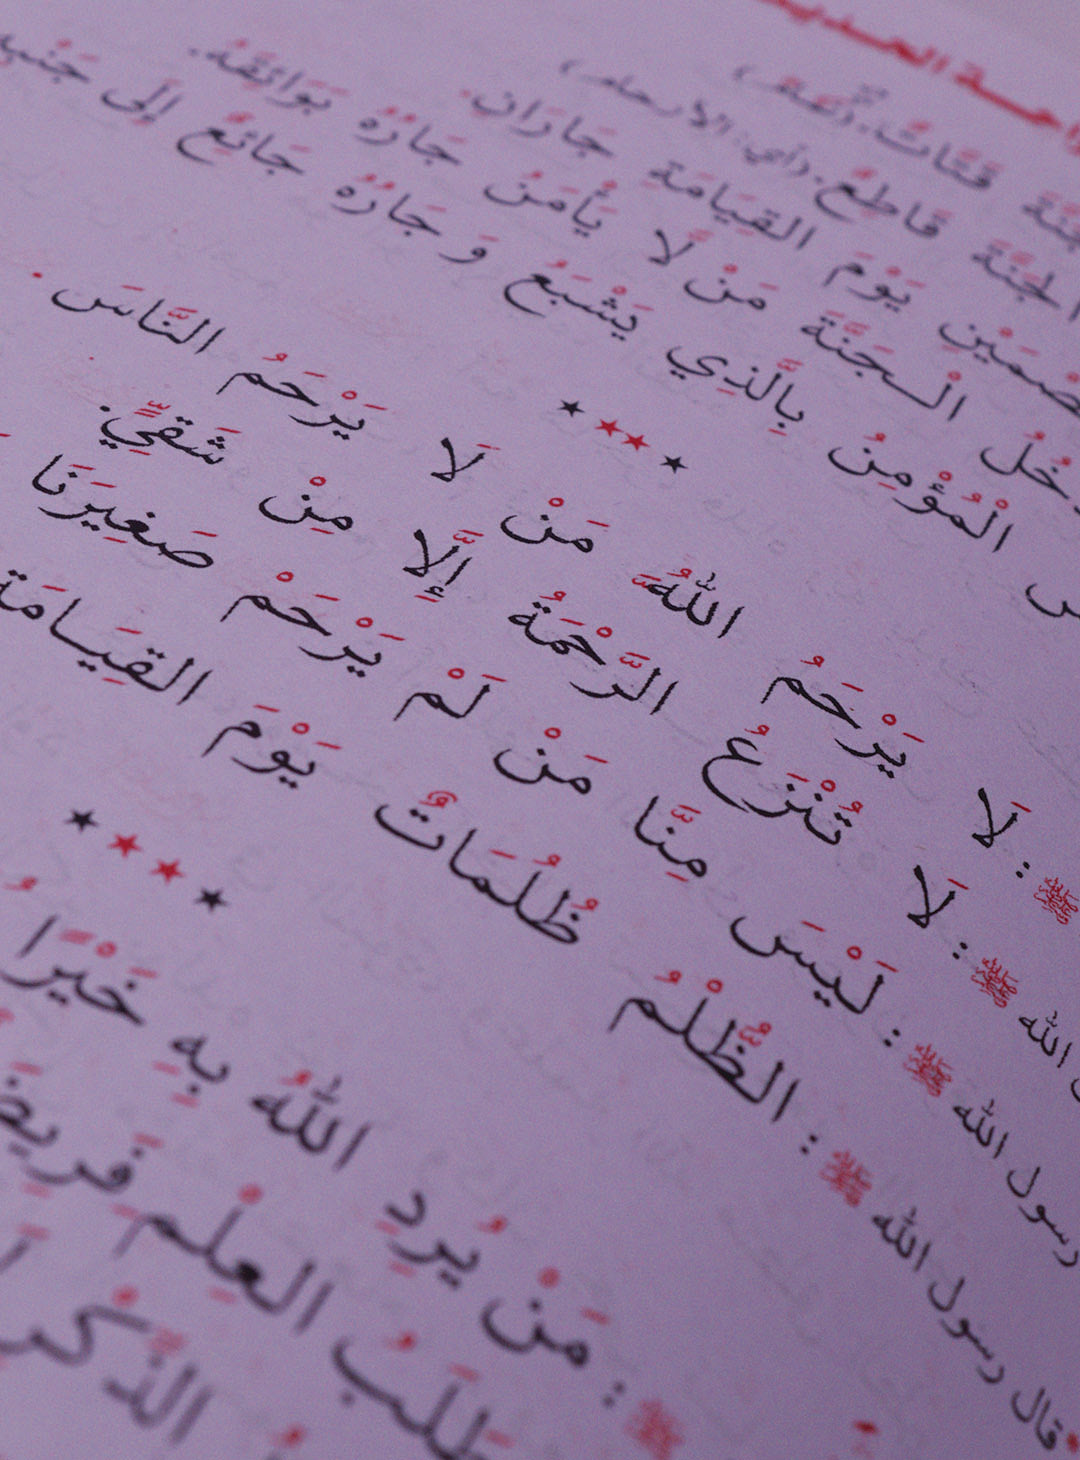 قَتَّاتٌ.
الجَنَّةَ قَاطِعٌ. (أي: الأرحام)
يَوْمَ القِيَامَةِ جَارَانِ.
الْـجَنَّةَ مَنْ لَا يَأْمَنُ جَارُهُ بَوَائِقَهُ.
الْمُؤْمِنُ بِالَّذِي يَشْبَعُ وَجَارُهُ جَائِعٌ إِلَى
★★★★
ﷺ : لَا يَرْحَمُ اللهُ مَنْ لَا يَرْحَمُ النَّاسَ .
الله ﷺ : لَا تُنْزَعُ الرَّحْمَةُ إِلَّا مِنْ شَقِيٍّ.
رسول الله ﷺ : لَيْسَ مِنَّا مَنْ لَمْ يَرْحَمْ صَغِيرَنَا
قال رسول الله ﷺ : الظُّلْمُ ظُلُمَاتٌ يَوْمَ القِيَامَةِ
★★★★
ﷺ : مَنْ يُرِدِ اللهُ بِهِ خَيْرًا
طَلَبُ العِلْمِ